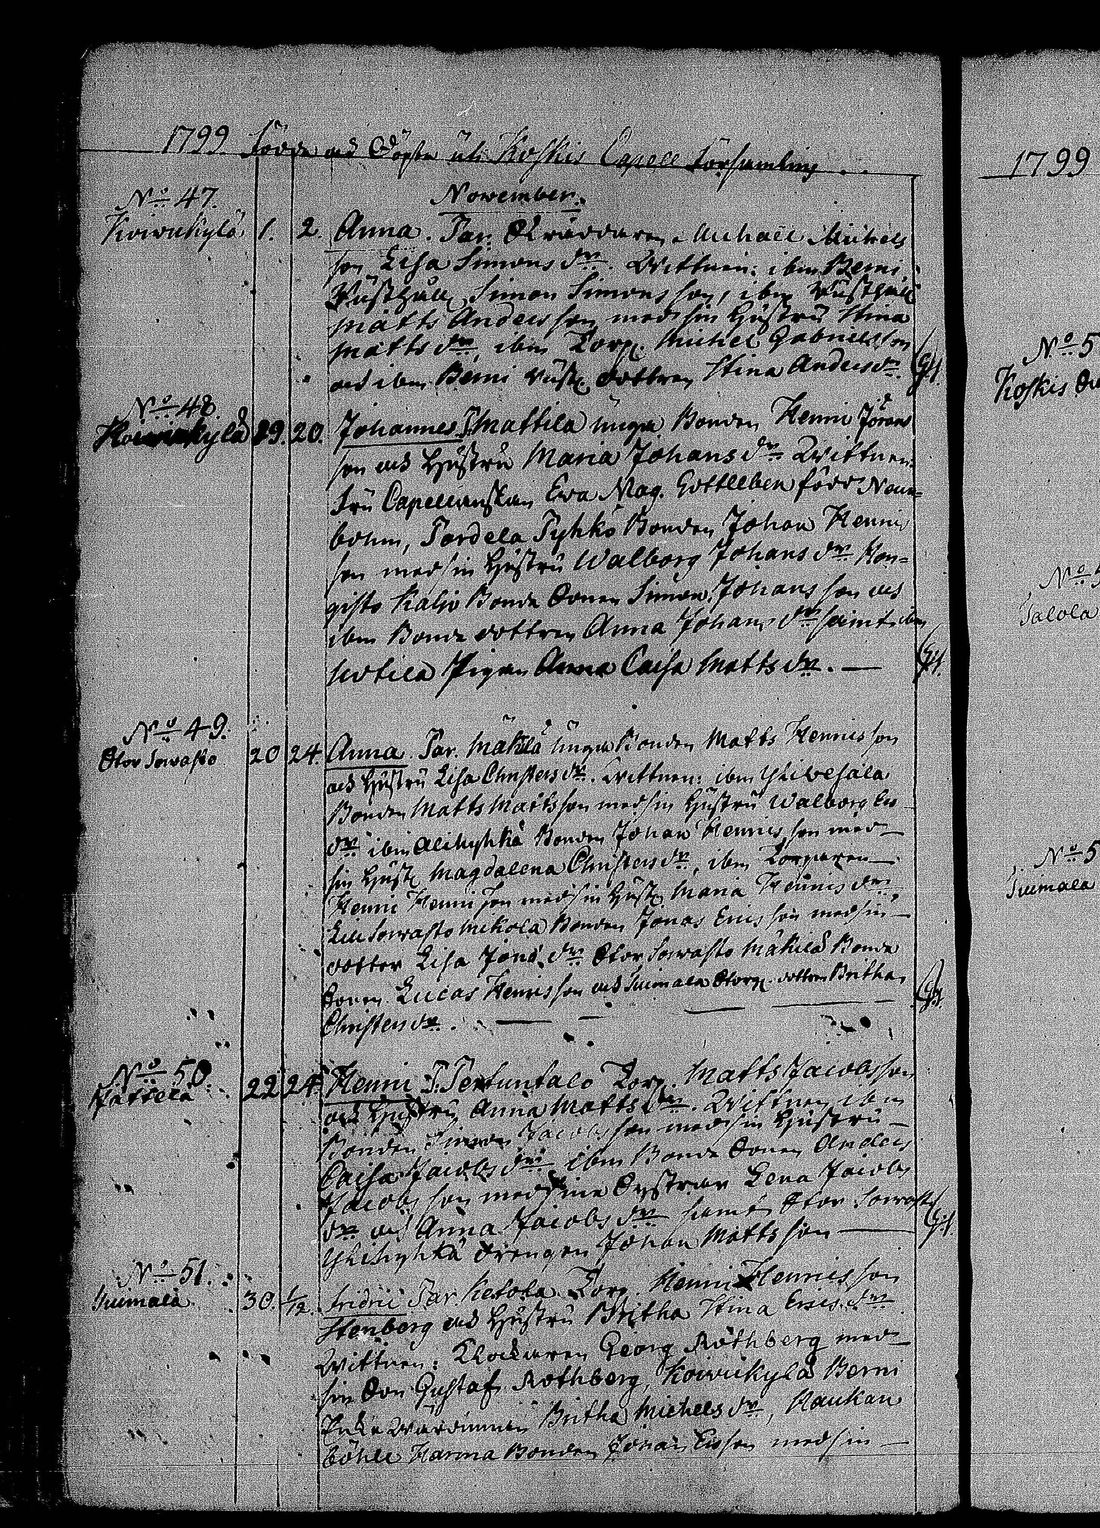 1799 Födde och Döpte uti Koskis Capell Församling
November.
No 47.
Koiwukylä 1. 2. Anna. Par. Michael Michels
son Lisa Simons dr. Wittnen: ibm Berni
Rusthåll Simon Simonsson, ibm Rusthåll
Matts Andersson med sin Hustru Stina
Matts dr, ibm Torp. Michel Gabrielsson
och ibm Berni Rust. dottren Stina Anders dr.
No 48
Koiwukylä 19. 20. Johannes P. Mattila unga Bonden Henric Jörans
son och Hustru Maria Johans dr Wittnen:
Fru Capellanskan Eva Mag. Gottleben född
bohm, Pardela Pyhkö Bonden Johan Henrics
son med sin Hustru Walborg Johans dr
Bonde Sonen Simon Johansson och
ibm Bonde dottren Anna Johans dr samt ibm
Pigan Anna Caisa Matts dr. —
No 49.
Stor Sorvasto 20 24. Anna. Par. Mäkilä unga Bonden Matts Henricsson
och Hustru Lisa Christers dr. Wittnen: ibm
Bonden Matts Mattsson med sin Hustru Walborg
dr ibm Alikyhkä Bonden Johan Henricsson med
sin Hust. Magdalena Christers dr, ibm Torparen
Henric Henricsson med sin Hust. Maria Henrics dr
Lill Sorvasto Mikola Bonden Jonas Ericsson med sin
dotter Lisa Jonæ dr Stor Sorvasto Mäkilä Bonde
Sonen Lucas Henricsson och Suimala dottren Britha
Christers dr.
No 50.
Pättelä 22 24. Henric P. Pertuntalo Torp. Matts Jacobsson
och Hustru Anna Matts dr. Wittnen ibm
Bonden Simon Jacobsson med sin Hustru
Caisa Jacobs dr ibm Bonde Sonen Anders
Jacobsson med sina Systrar Lena Jacobs
dr och Anna Jacobs dr samt Stor Sorvasto
Ylikyhkä drengen Johan Mattsson
No 51.
Suimala 30. 1/12. Fridric Par. Ketola Torp. Henric Henricsson
Stenberg och Hustru Britha Stina Erics dr
Wittnen: Klockaren Georg Rothberg med
sin Son Gustaf Rothberg, Koiwukylä Berni
Britha Michels dr, Raukan
böhle Harma Bonden Johan Ersson med sin
1799
No 5
Koskis
No 5
Talola
No 5
Suimala